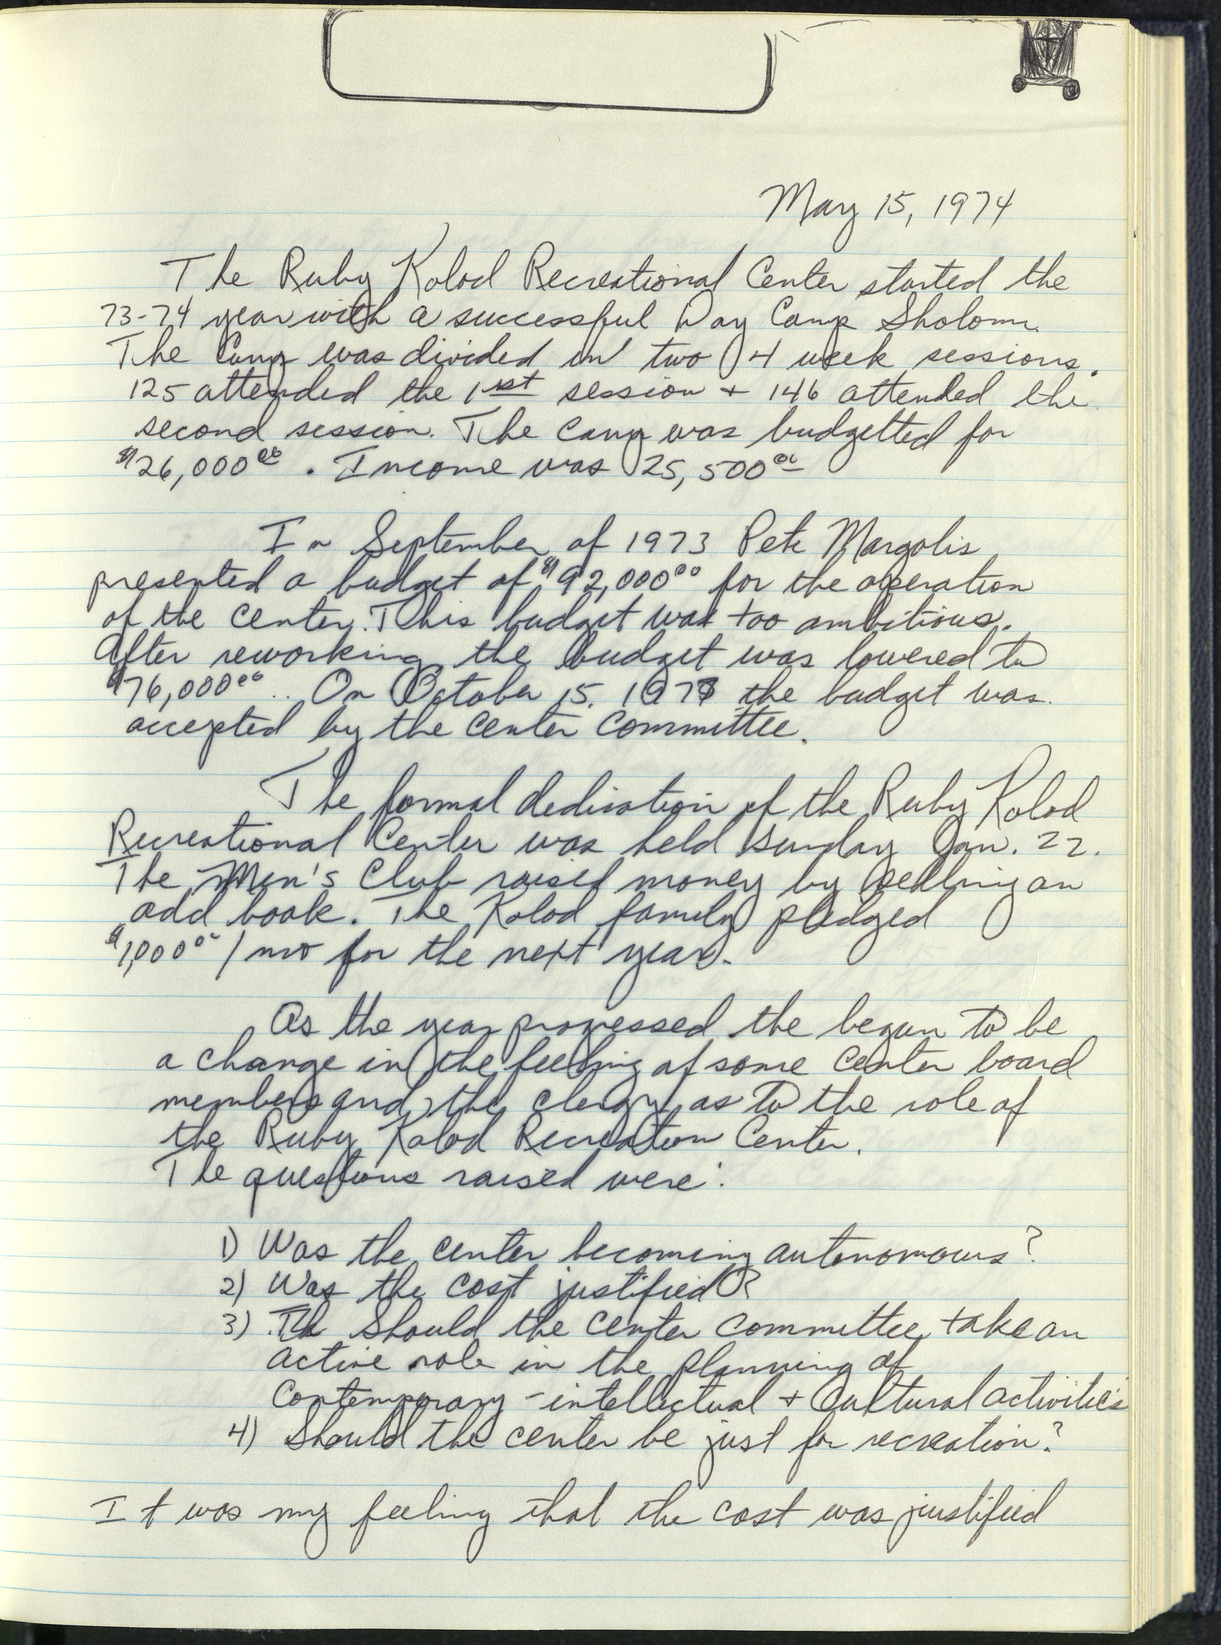 May 15, 1974
The Ruby Kolod Recreational Center started the
73-74 year with a successful Day Camp Sholom.
The Camp was divided in two 4 week sessions.
125 attended the 1st session + 146 attended the
second session. The camp was budgetted for
$26,000.00. Income was 25,500.00
In September of 1973 Pete Margolis
presented a budget of $92,000.00 for the operation
of the center. This budget was too ambitious.
After reworking the budget was lowered to
$76,000.00.. On October 15, 1973 the budget was
accepted by the center committee.
The formal dedication of the Ruby Kolod
Recreational Center was held Sunday Jan. 22.
The Men's Club raised money by selling an
add book. The Kolod family pledged
$1,000.00 / mo for the next year.
As the year progressed the began to be
a change in the feeling of some center board
members and the clergy as to the role of
the Ruby Kolod Recreation Center.
The questions raised were:
1) Was the center becoming autonomous?
2) Was the cost justified?
3) Th Should the center committee take an
active role in the planning of
contemporary - intellectual + cultural activities
4) Should the center be just for recreation?
It was my feeling that the cost was justified